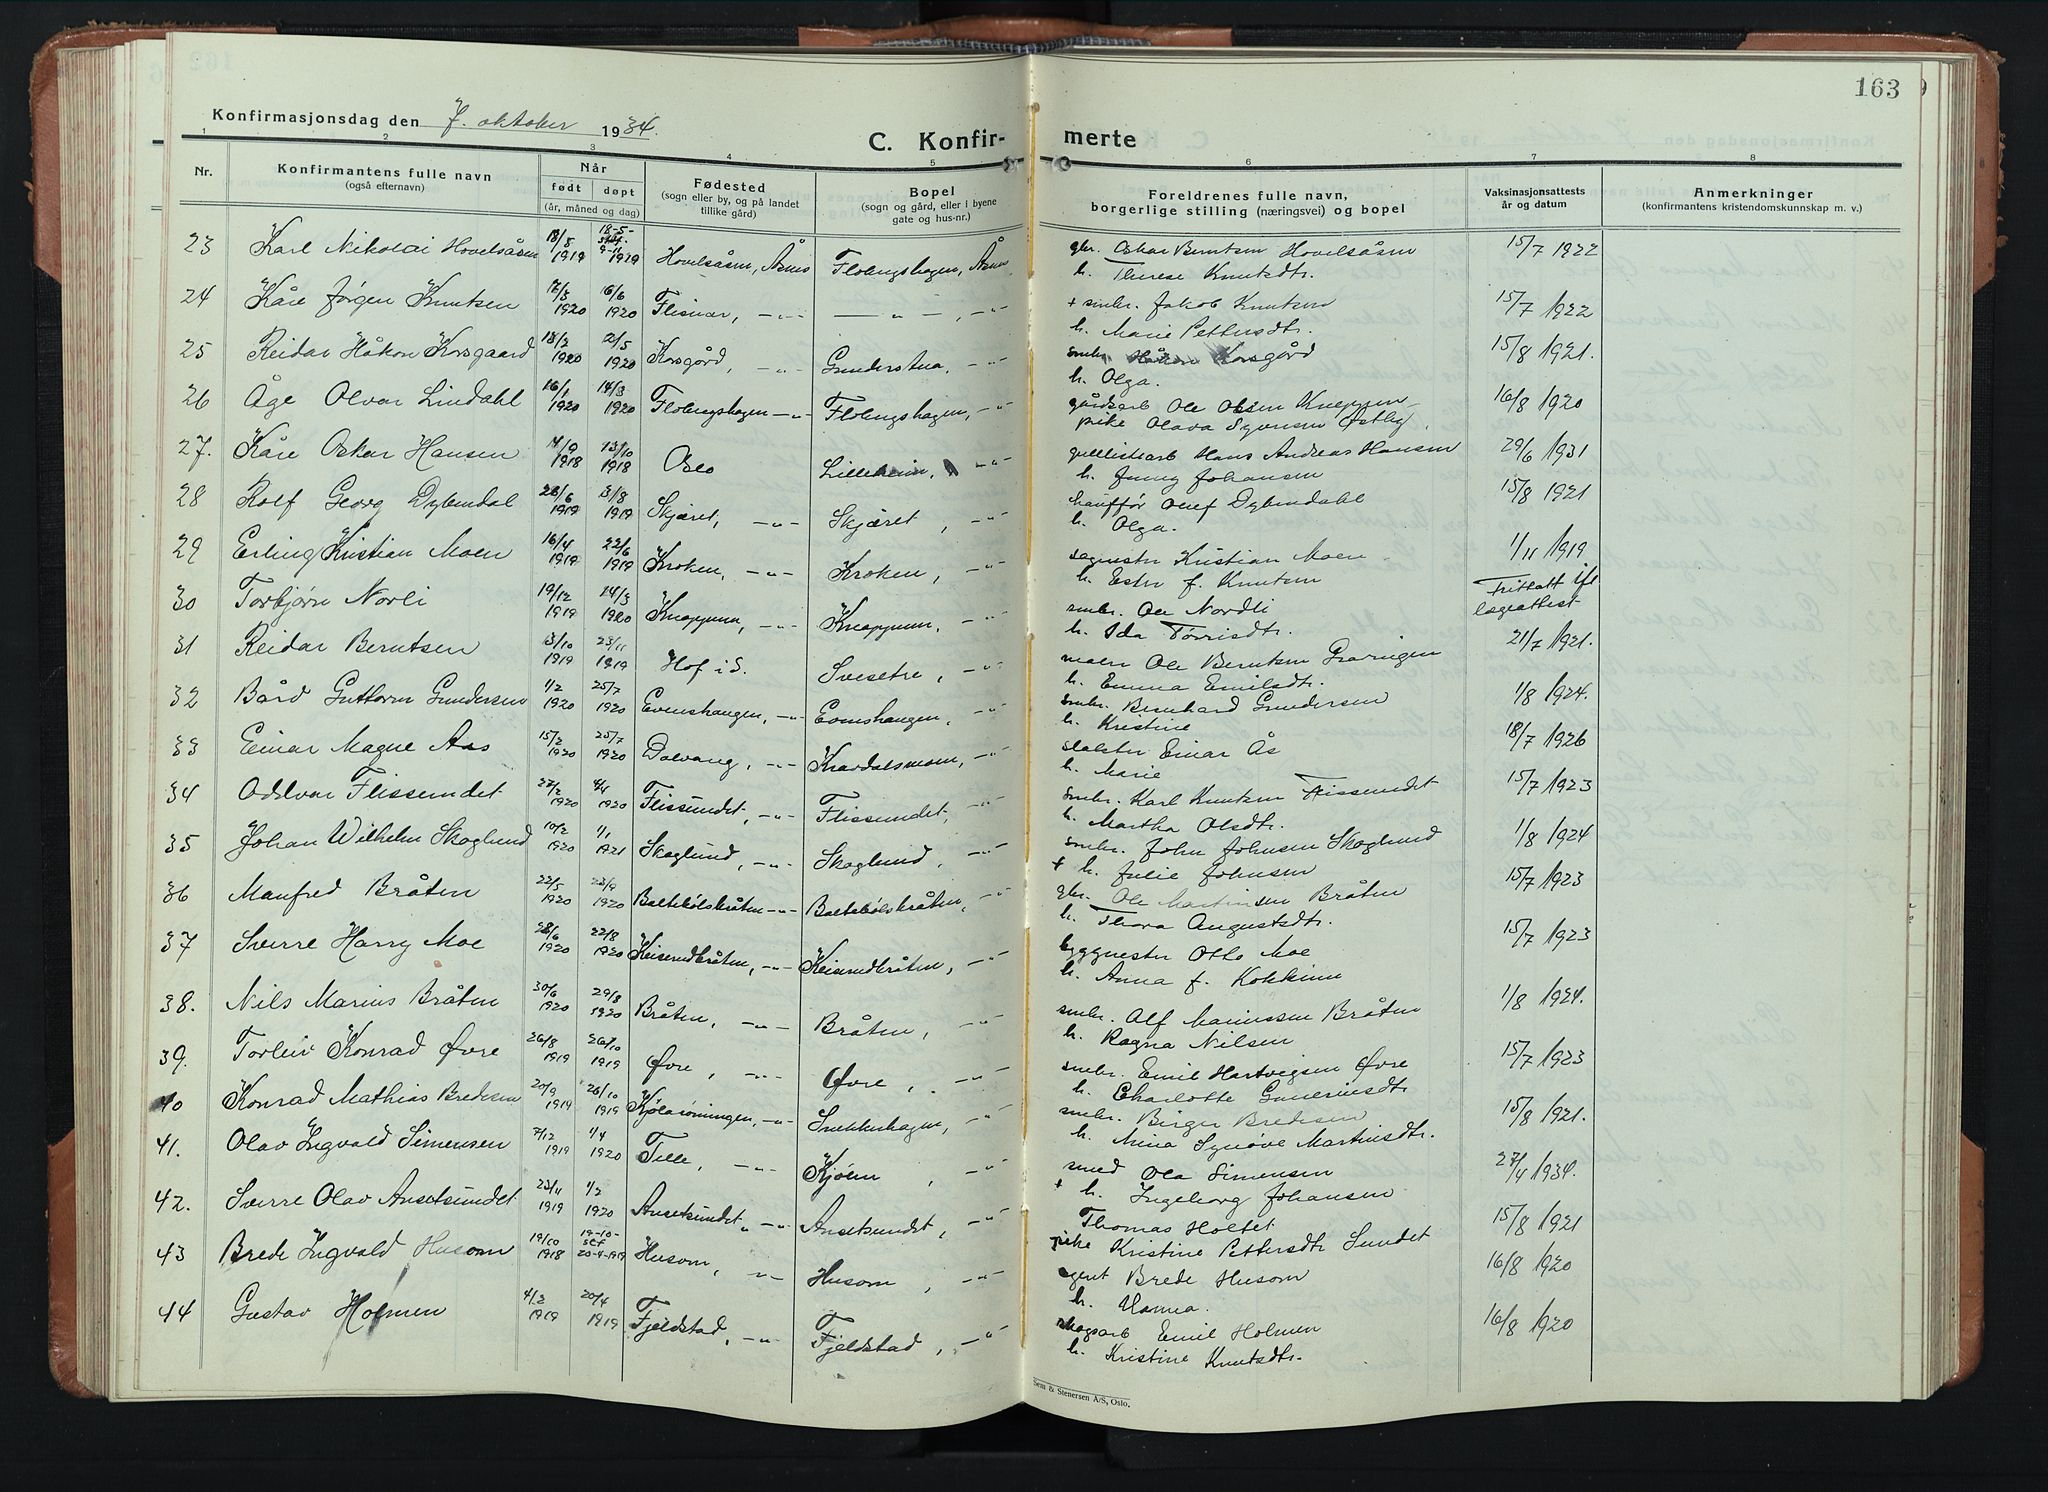 163
Konfirmasjonsdag den 7. oktober 1934.
C. Konfir- merte
1 2 3 4 5 6 7 8
Nr. Konfirmantens fulle navn (også efternavn) Når født døpt (år, måned og dag) Fødested (sogn eller by, og på landet tillike gård) Bopel (sogn og gård, eller i byene gate og hus-nr.) Foreldrenes fulle navn, borgerlige stilling (næringsvei) og bopel Vaksinasjonsattests år og datum Anmerkninger (konfirmantens kristendomskunnskap m. v.)
23 Karl Nikolai Hovelsåsen 18/8 1919 9-11 1919 Hovelsåsen, Åsnes Flobergshagen, Åsnes gbr. Oskar Berntsen Hovelsåsen 15/7 1922
h. Therese Knutsdtr.
24 Kåre Jørgen Knutsen 12/3 1920 16/6 1920 Flisnar, -"- -"-, -"- + smbr. Jakob Knutsen 15/7 1922
h. Marie Pettersdtr.
25 Reidar Håkon Korsgaard 18/2 1920 2/5 1920 Korsgård, -"- Gunderstua, -"- smbr. Håkon Korsgård 15/8 1921.
h. Olga.
26 Åge Olvar Lindahl 16/1 1920 14/3 1920 Flobergshagen -"- Flobergshagen, -"- gårdsarb Ole Olsen Kneppen 16/8 1920
pike Olava Syversen Østby.
27. Kåre Oskar Hansen 4/9 1918 13/10 1918 Oslo Lilleheim, -"- Hans Andreas Hansen 29/6 1931
h. Jenny Johansen
28 Rolf Georg Dybendal 22/6 1919 3/8 1919 Skjæret, -"- Skjæret, -"- chauffør Olef Dybendahl 15/8 1921
h. Olga.
29 Erling Kristian Moen 16/4 1919 22/6 1919 Kroken, -"- Kroken, -"- sagmester Kristian Moen 1/11 1919
h. Ester f. Knutsen
30 Torbjørn Norli 19/12 1919 14/3 1920 Knappum, -"- Knappum, -"- smbr. Ole Nordli Fritatt ifl lægeattest
h. Ida Tørrisdtr.
31 Reidar Berntsen 13/10 1919 23/11 1919 Hof i S. Svesetre, -"- maler Ole Berntsen Graringen 21/7 1921.
h. Emma Emilsdtr.
32 Bård Guttorm Gundersen 1/2 1920 25/7 1920 Evenshaugen, -"- Evenshaugen, -"- smbr. Bernhard Gundersen 1/8 1924.
h. Kristine
33 Einar Magne Aas 15/2 1920 25/7 1920 Dalvang, -"- Kvardalsmoen, -"- slakter Einar Ås 18/7 1926
h. Marie
34 Oddvar Flissundet 27/2 1920 4/4 1920 Flissundet, -"- Flissundet, -"- smbr. Karl Knutsen Flissundet 15/7 1923
h. Martha Olsdtr.
35 Johan Wilhelm Skoglund 10/2 1920 1/1 1921 Skoglund, -"- Skoglund, -"- smbr. John Johnsen Skoglund 1/8 1924
+ h. Julie Johnsen
36 Manfred Bråten 22/5 1920 23/9 1920 Baltebølsbråten -"- Baltebølsbråten, -"- gbr. Ole Martinsen Bråten 15/7 1923
h. Thora Augustsdtr.
37 Sverre Harry Moe 28/6 1920 22/8 1920 Keiserudbråten, -"- Keiserudbråten, -"- byggmester Otto Moe 15/7 1923
h. Anna f. Kokkinn
38. Nils Marius Bråten 30/6 1920 29/8 1920 Bråten, -"- Bråten, -"- smbr. Alf Mariussen Bråten 1/8 1924.
h. Ragna Nilsen
39. Torleiv Konrad Øvre 26/8 1919 26/10 1919 Øvre, -"- Øvre, -"- smbr. Emil Hartvigsen Øvre 15/7 1923
h. Charlotte Guneriusdtr.
40 Konrad Mathias Bredesen 20/9 1919 26/10 1919 Kjølarønningen, -"- Snekkerhagen, -"- smbr. Birger Bredesen 15/8 1921.
h. Mina Synøve Martinsdtr.
41. Olav Ingvald Simensen 7/12 1919 1/4 1920 Telle, -"- Kjølen, -"- smed Ola Simensen 27/4 1934.
+ h. Ingeborg Johansen
42. Sverre Olav Ansetsundet 23/11 1919 1/2 1920 Ansetsundet, -"- Ansetsundet, -"- Thomas Holtet 15/8 1921
pike Kristine Pettersdtr Sundet
43 Brede Ingvald Husom 19/10 1918 19-10- 20-4-1919 Husom, -"- Husom, -"- agent Brede Husom 16/8 1920
h. Hanna.
44 Gustav Holmen 4/2 1919 20/4 1919 Fjeldstad, -"- Fjeldstad, -"- skogsarb Emil Holmen 16/8 1920
h. Kristine Knutsdtr.
Sem & Stenersen A/S, Oslo.